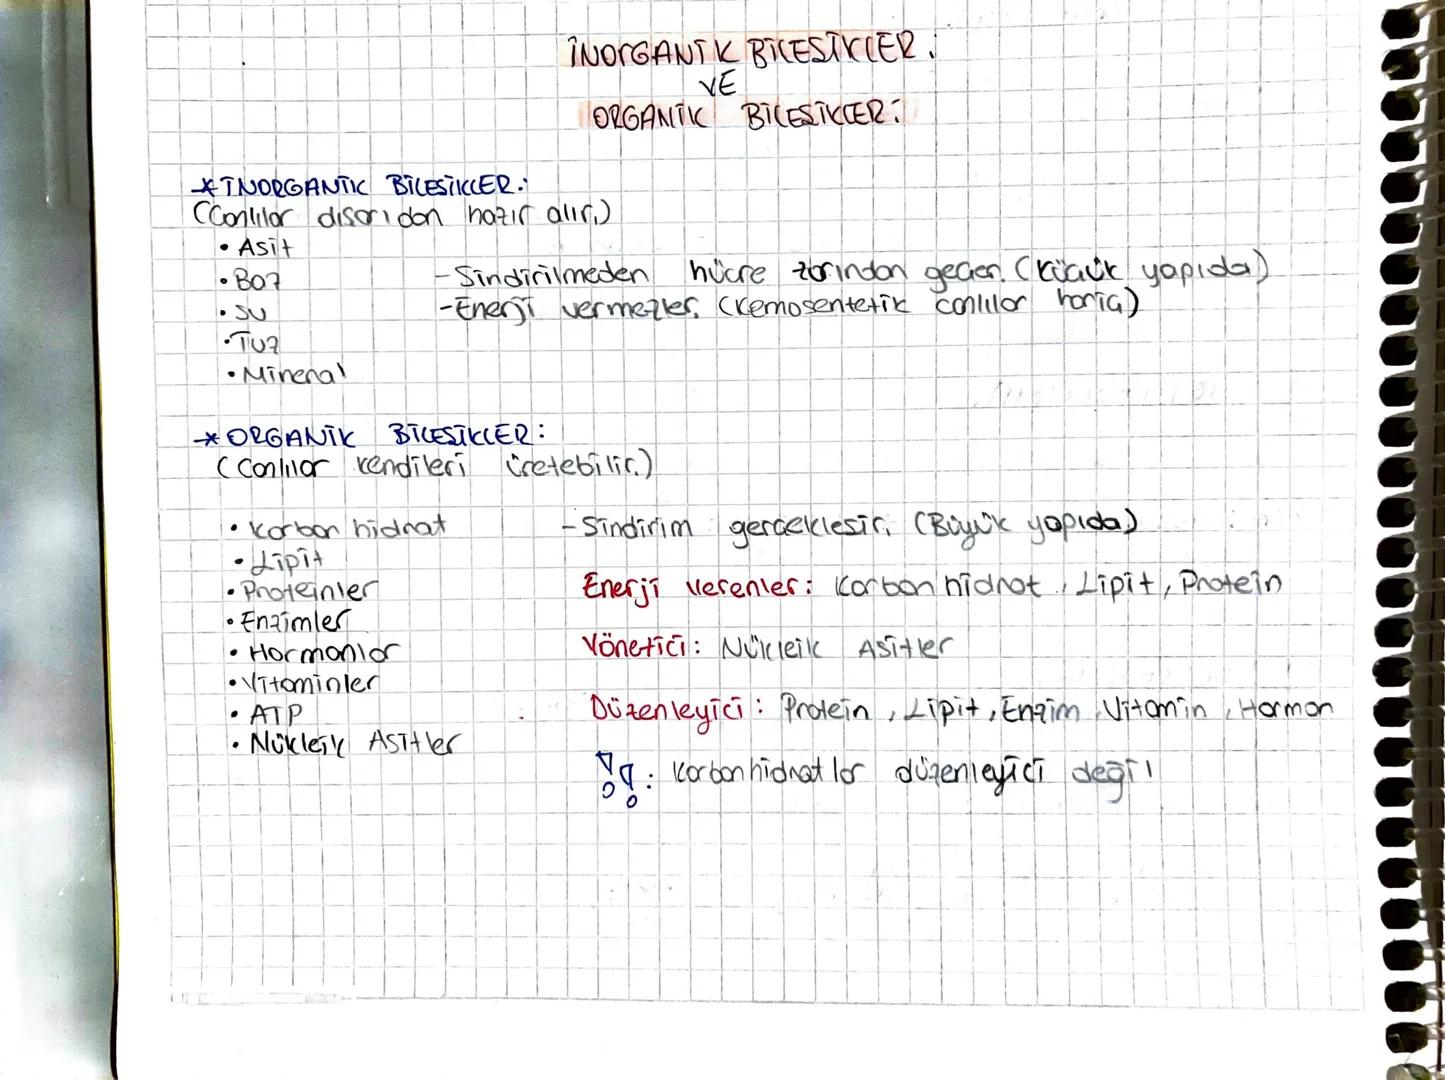 İNORGANİK BİLEŞİKLER:
VE
ORGANİK BİLEŞİKLER:
* İNORGANİK BİLEŞİKLER:
(Canlılar dışarıdan hazır alır.)
• Asit
• Baz
- Sindirilmeden hücre zarından geçer. (Küçük yapıda)
• Su
- Enerji vermezler. (Kemosentetik canlılar hariç)
• Tuz
• Mineral
* ORGANİK BİLEŞİKLER:
(Canlılar kendileri üretebilir.)
• Karbonhidrat
- Sindirim gerçekleşir. (Büyük yapıda)
• Lipit
• Proteinler
Enerji verenler: Karbonhidrat, Lipit, Protein
• Enzimler
• Hormonlar
Yönetici: Nükleik Asitler
• Vitaminler
• ATP
Düzenleyici: Protein, Lipit, Enzim, Vitamin, Hormon
• Nükleik Asitler
!!: Karbonhidratlar düzenleyici değil